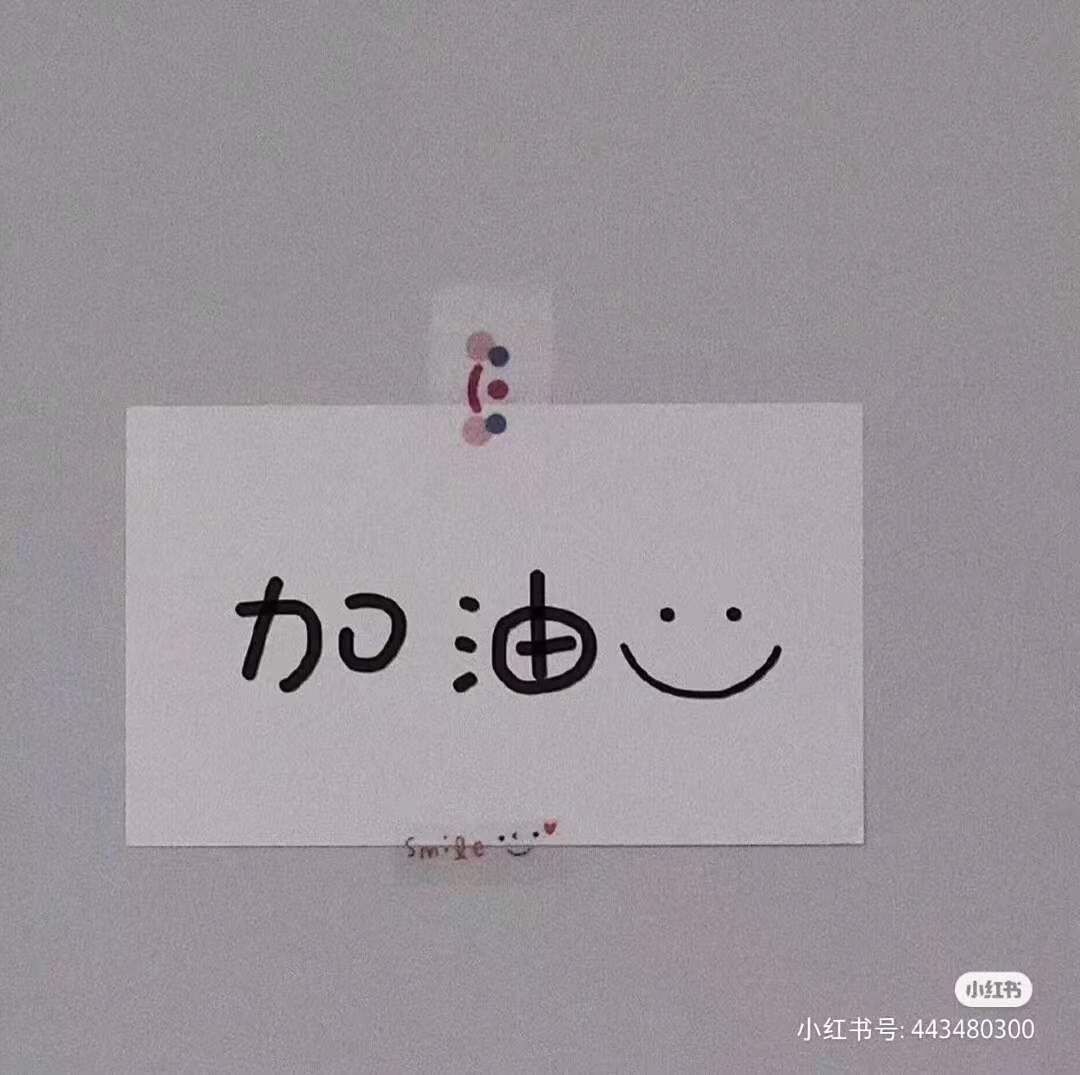 加油
smile
小红书
小红书号: 443480300